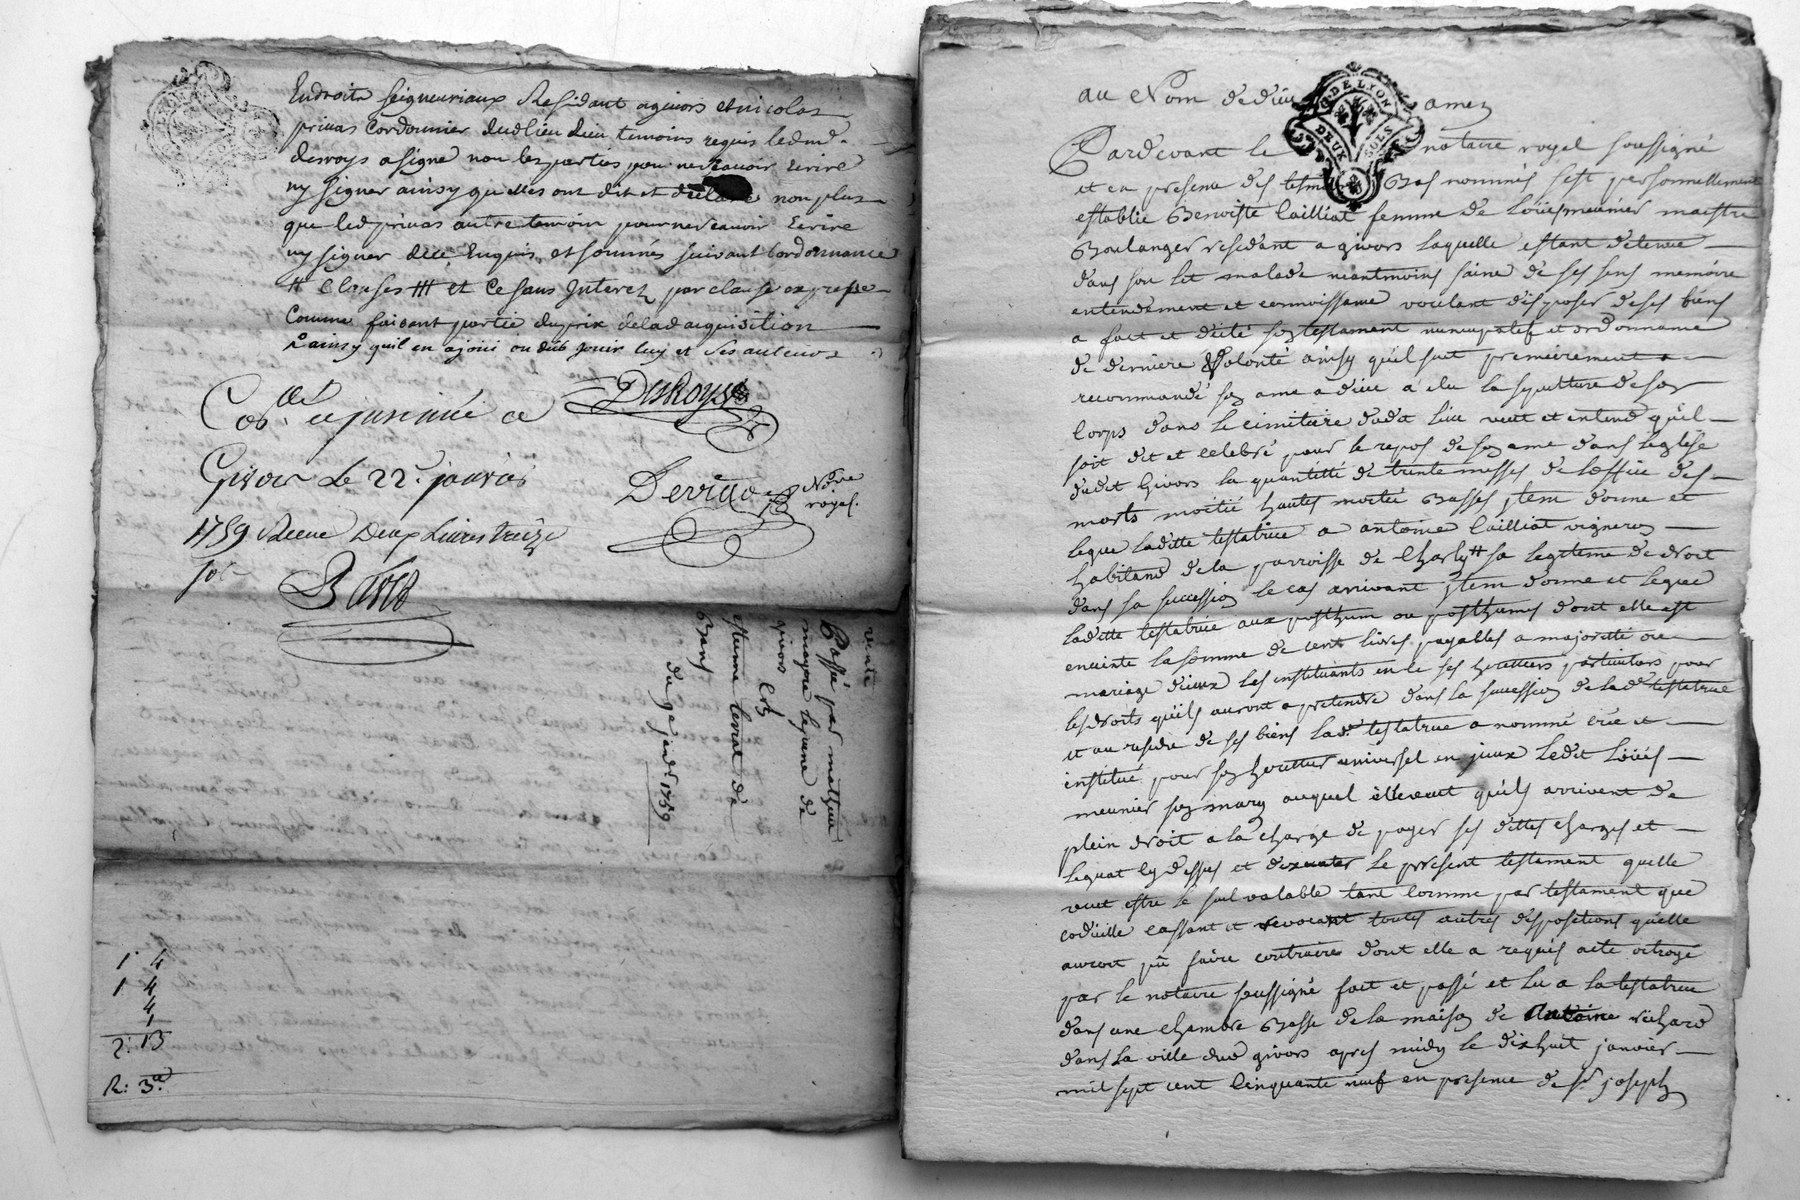 En droits seigneuriaux Residant a givors et nicolas
privas Cordonnier dudlieu dieu temoins requis led mr.
desroys a signé non les parties pour ne scavoir Ecrire
ny signer ainsy quelles ont dit et declaré non plus
que led privas autre temoin pour ne scavoir Ecrire
ny signer dece Enquis et sommés suivant Lordonnance
# clauses ### et Ce sans Interez par clause expresse
Comme faisant partie du prix de lad acquisition
Lainsy quil en a joui ou dub jouir luy et ses auteurs
DesRoys
Givors Le 22e janvier
1759 Receu Deux Livres treize
sol
Nore
royal
vente
Passé par mathieu
mayore lejeune de
givors
estienne terrat de
Bans
du 9e janvr 1759
1 4
1 4
4
1
2: 13
R: 3
au Nom de dieu amen
G. DE LYON
DEUX SOLS
Pardevant le notaire royal soussigné
et en presence des tesm Bas nommés s'est personnellement
establie Benoiste Cailliat femme de Loüis meunier maestre
Boulanger residant a givors laquelle estant detenue
dans son lit malade neantmoins saine de ses sens memoire
entendement et connoissance voulant disposer de ses biens
a fait et dicté son testament nuncupatif et ordonnance
de derniere Volonté ainsy qu'il suit premierement a
recommandé son ame a dieu a elu la sepulture de son
Corps dans le cimitiere dudit lieu veut et entend qu'il
soit dit et celebré pour le repos de son ame dans l'eglise
dudit Givors la quantitté de trente messes de l'office des
morts moitié hautes moitié Basses jtem donne et
legue laditte testatrice a antoine Cailliat vigneron
habitand de la parroisse de Charly # sa legitime de droit
dans sa succession le cas arrivant jtem donne et legue
laditte testatrice aux posthum ou posthumes dont elle est
enceinte la somme de cent livres payables a majoritté ou
mariage d'iceux les instituants en ce ses heritiers particuliers pour
les droits qu'ils auront a pretendre dans la succession de lade testatrice
et au residu de ses biens lade testatrice a nommé crée et
institué pour son heritier universel en jceux ledit Loüis
meunier son mary auquel elle veut qu'ils arrivent de
plein droit a la charge de payer ses dittes charges et
leguat cy dessus et dexecuter le present testament quelle
veut estre le seul valable tant comme par testament que
codicille cassant et revocant toutes autres dispositions qu'elle
auroit pu faire contraires dont elle a requis acte octroyé
par le notaire soussigné fait et passé et lu a la testatrice
dans une chambre Basse de la maison de Antoine richard
dans la ville dud givors apres midy le dixhuit janvier
mil sept cent Cinquante neuf en presence de sr joseph